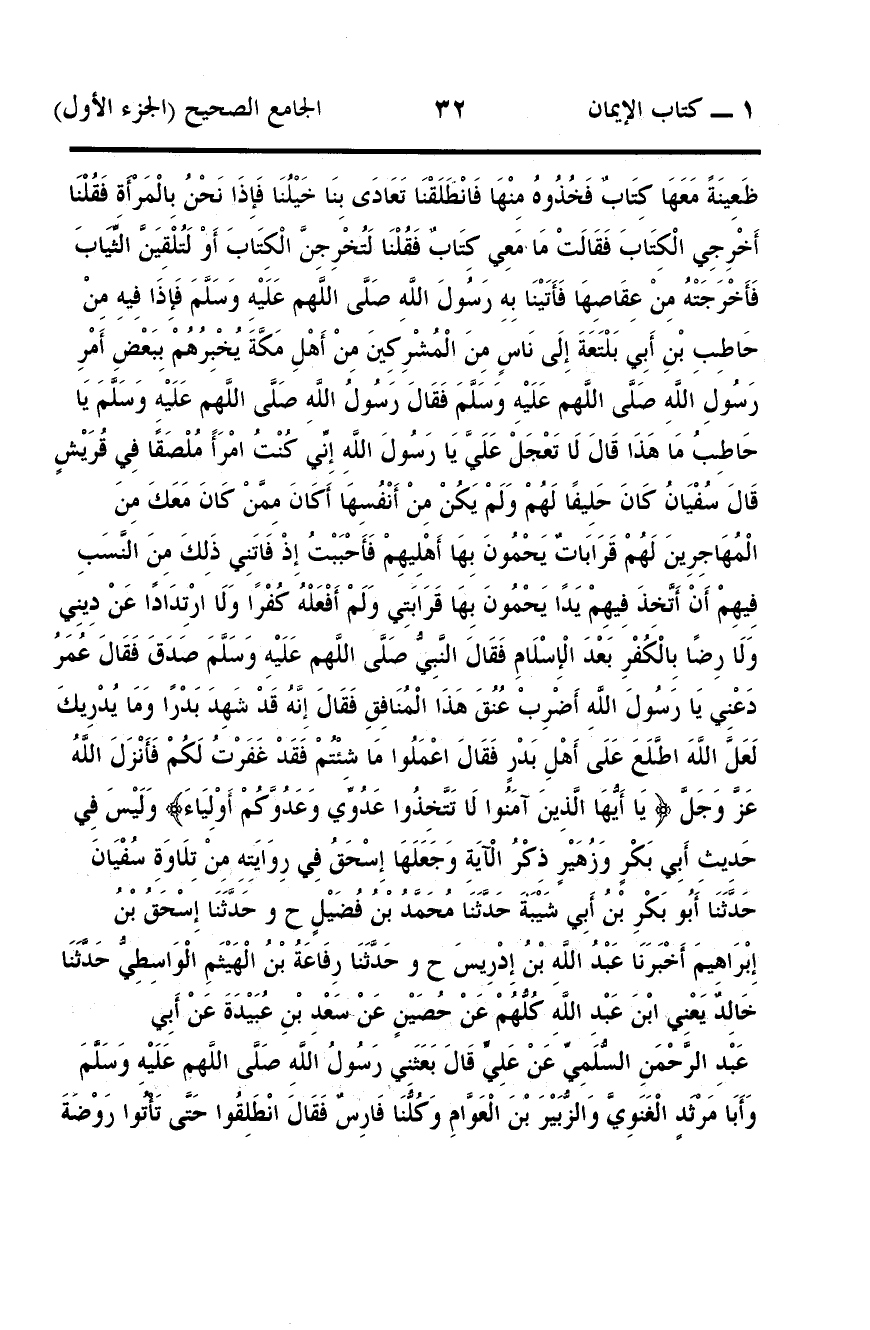 ١ ــ كتاب الإيمان ٣٢ الجامع الصحيح (الجزء الأول)
ظَعِينَةً مَعَهَا كِتَابٌ فَخُذُوهُ مِنْهَا فَانْطَلَقْنَا تَعَادَى بِنَا خَيْلُنَا فَإِذَا نَحْنُ بِالْمَرْأَةِ فَقُلْنَا
أَخْرِجِي الْكِتَابَ فَقَالَتْ مَا مَعِي كِتَابٌ فَقُلْنَا لَتُخْرِجِنَّ الْكِتَابَ أَوْ لَتُلْقِيَنَّ الثِّيَابَ
فَأَخْرَجَتْهُ مِنْ عِقَاصِهَا فَأَتَيْنَا بِهِ رَسُولَ اللَّهِ صَلَّى اللَّهم عَلَيْهِ وَسَلَّمَ فَإِذَا فِيهِ مِنْ
حَاطِبِ بْنِ أَبِي بَلْتَعَةَ إِلَى نَاسٍ مِنَ الْمُشْرِكِينَ مِنْ أَهْلِ مَكَّةَ يُخْبِرُهُمْ بِبَعْضِ أَمْرِ
رَسُولِ اللَّهِ صَلَّى اللَّهم عَلَيْهِ وَسَلَّمَ فَقَالَ رَسُولُ اللَّهِ صَلَّى اللَّهم عَلَيْهِ وَسَلَّمَ يَا
حَاطِبُ مَا هَذَا قَالَ لَا تَعْجَلْ عَلَيَّ يَا رَسُولَ اللَّهِ إِنِّي كُنْتُ امْرَأً مُلْصَقًا فِي قُرَيْشٍ
قَالَ سُفْيَانُ كَانَ حَلِيفًا لَهُمْ وَلَمْ يَكُنْ مِنْ أَنْفُسِهَا أَكَانَ مِمَّنْ كَانَ مَعَكَ مِنَ
الْمُهَاجِرِينَ لَهُمْ قَرَابَاتٌ يَحْمُونَ بِهَا أَهْلِيهِمْ فَأَحْبَبْتُ إِذْ فَاتَنِي ذَلِكَ مِنَ النَّسَبِ
فِيهِمْ أَنْ أَتَّخِذَ فِيهِمْ يَدًا يَحْمُونَ بِهَا قَرَابَتِي وَلَمْ أَفْعَلْهُ كُفْرًا وَلَا ارْتِدَادًا عَنْ دِينِي
وَلَا رِضًا بِالْكُفْرِ بَعْدَ الْإِسْلَامِ فَقَالَ النَّبِيُّ صَلَّى اللَّهم عَلَيْهِ وَسَلَّمَ صَدَقَ فَقَالَ عُمَرُ
دَعْنِي يَا رَسُولَ اللَّهِ أَضْرِبْ عُنُقَ هَذَا الْمُنَافِقِ فَقَالَ إِنَّهُ قَدْ شَهِدَ بَدْرًا وَمَا يُدْرِيكَ
لَعَلَّ اللَّهَ اطَّلَعَ عَلَى أَهْلِ بَدْرٍ فَقَالَ اعْمَلُوا مَا شِئْتُمْ فَقَدْ غَفَرْتُ لَكُمْ فَأَنْزَلَ اللَّهُ
عَزَّ وَجَلَّ ﴿ يَا أَيُّهَا الَّذِينَ آمَنُوا لَا تَتَّخِذُوا عَدُوِّي وَعَدُوَّكُمْ أَوْلِيَاءَ﴾ وَلَيْسَ فِي
حَدِيثِ أَبِي بَكْرٍ وَزُهَيْرٍ ذِكْرُ الْآيَةِ وَجَعَلَهَا إِسْحَقُ فِي رِوَايَتِهِ مِنْ تِلَاوَةِ سُفْيَانَ
حَدَّثَنَا أَبُو بَكْرِ بْنُ أَبِي شَيْبَةَ حَدَّثَنَا مُحَمَّدُ بْنُ فُضَيْلٍ ح و حَدَّثَنَا إِسْحَقُ بْنُ
إِبْرَاهِيمَ أَخْبَرَنَا عَبْدُ اللَّهِ بْنُ إِدْرِيسَ ح و حَدَّثَنَا رِفَاعَةُ بْنُ الْهَيْثَمِ الْوَاسِطِيُّ حَدَّثَنَا
خَالِدٌ يَعْنِي ابْنَ عَبْدِ اللَّهِ كُلُّهُمْ عَنْ حُصَيْنٍ عَنْ سَعْدِ بْنِ عُبَيْدَةَ عَنْ أَبِي
عَبْدِ الرَّحْمَنِ السُّلَمِيِّ عَنْ عَلِيٍّ قَالَ بَعَثَنِي رَسُولُ اللَّهِ صَلَّى اللَّهم عَلَيْهِ وَسَلَّمَ
وَأَبَا مَرْثَدٍ الْغَنَوِيَّ وَالزُّبَيْرَ بْنَ الْعَوَّامِ وَكُلُّنَا فَارِسٌ فَقَالَ انْطَلِقُوا حَتَّى تَأْتُوا رَوْضَةَ